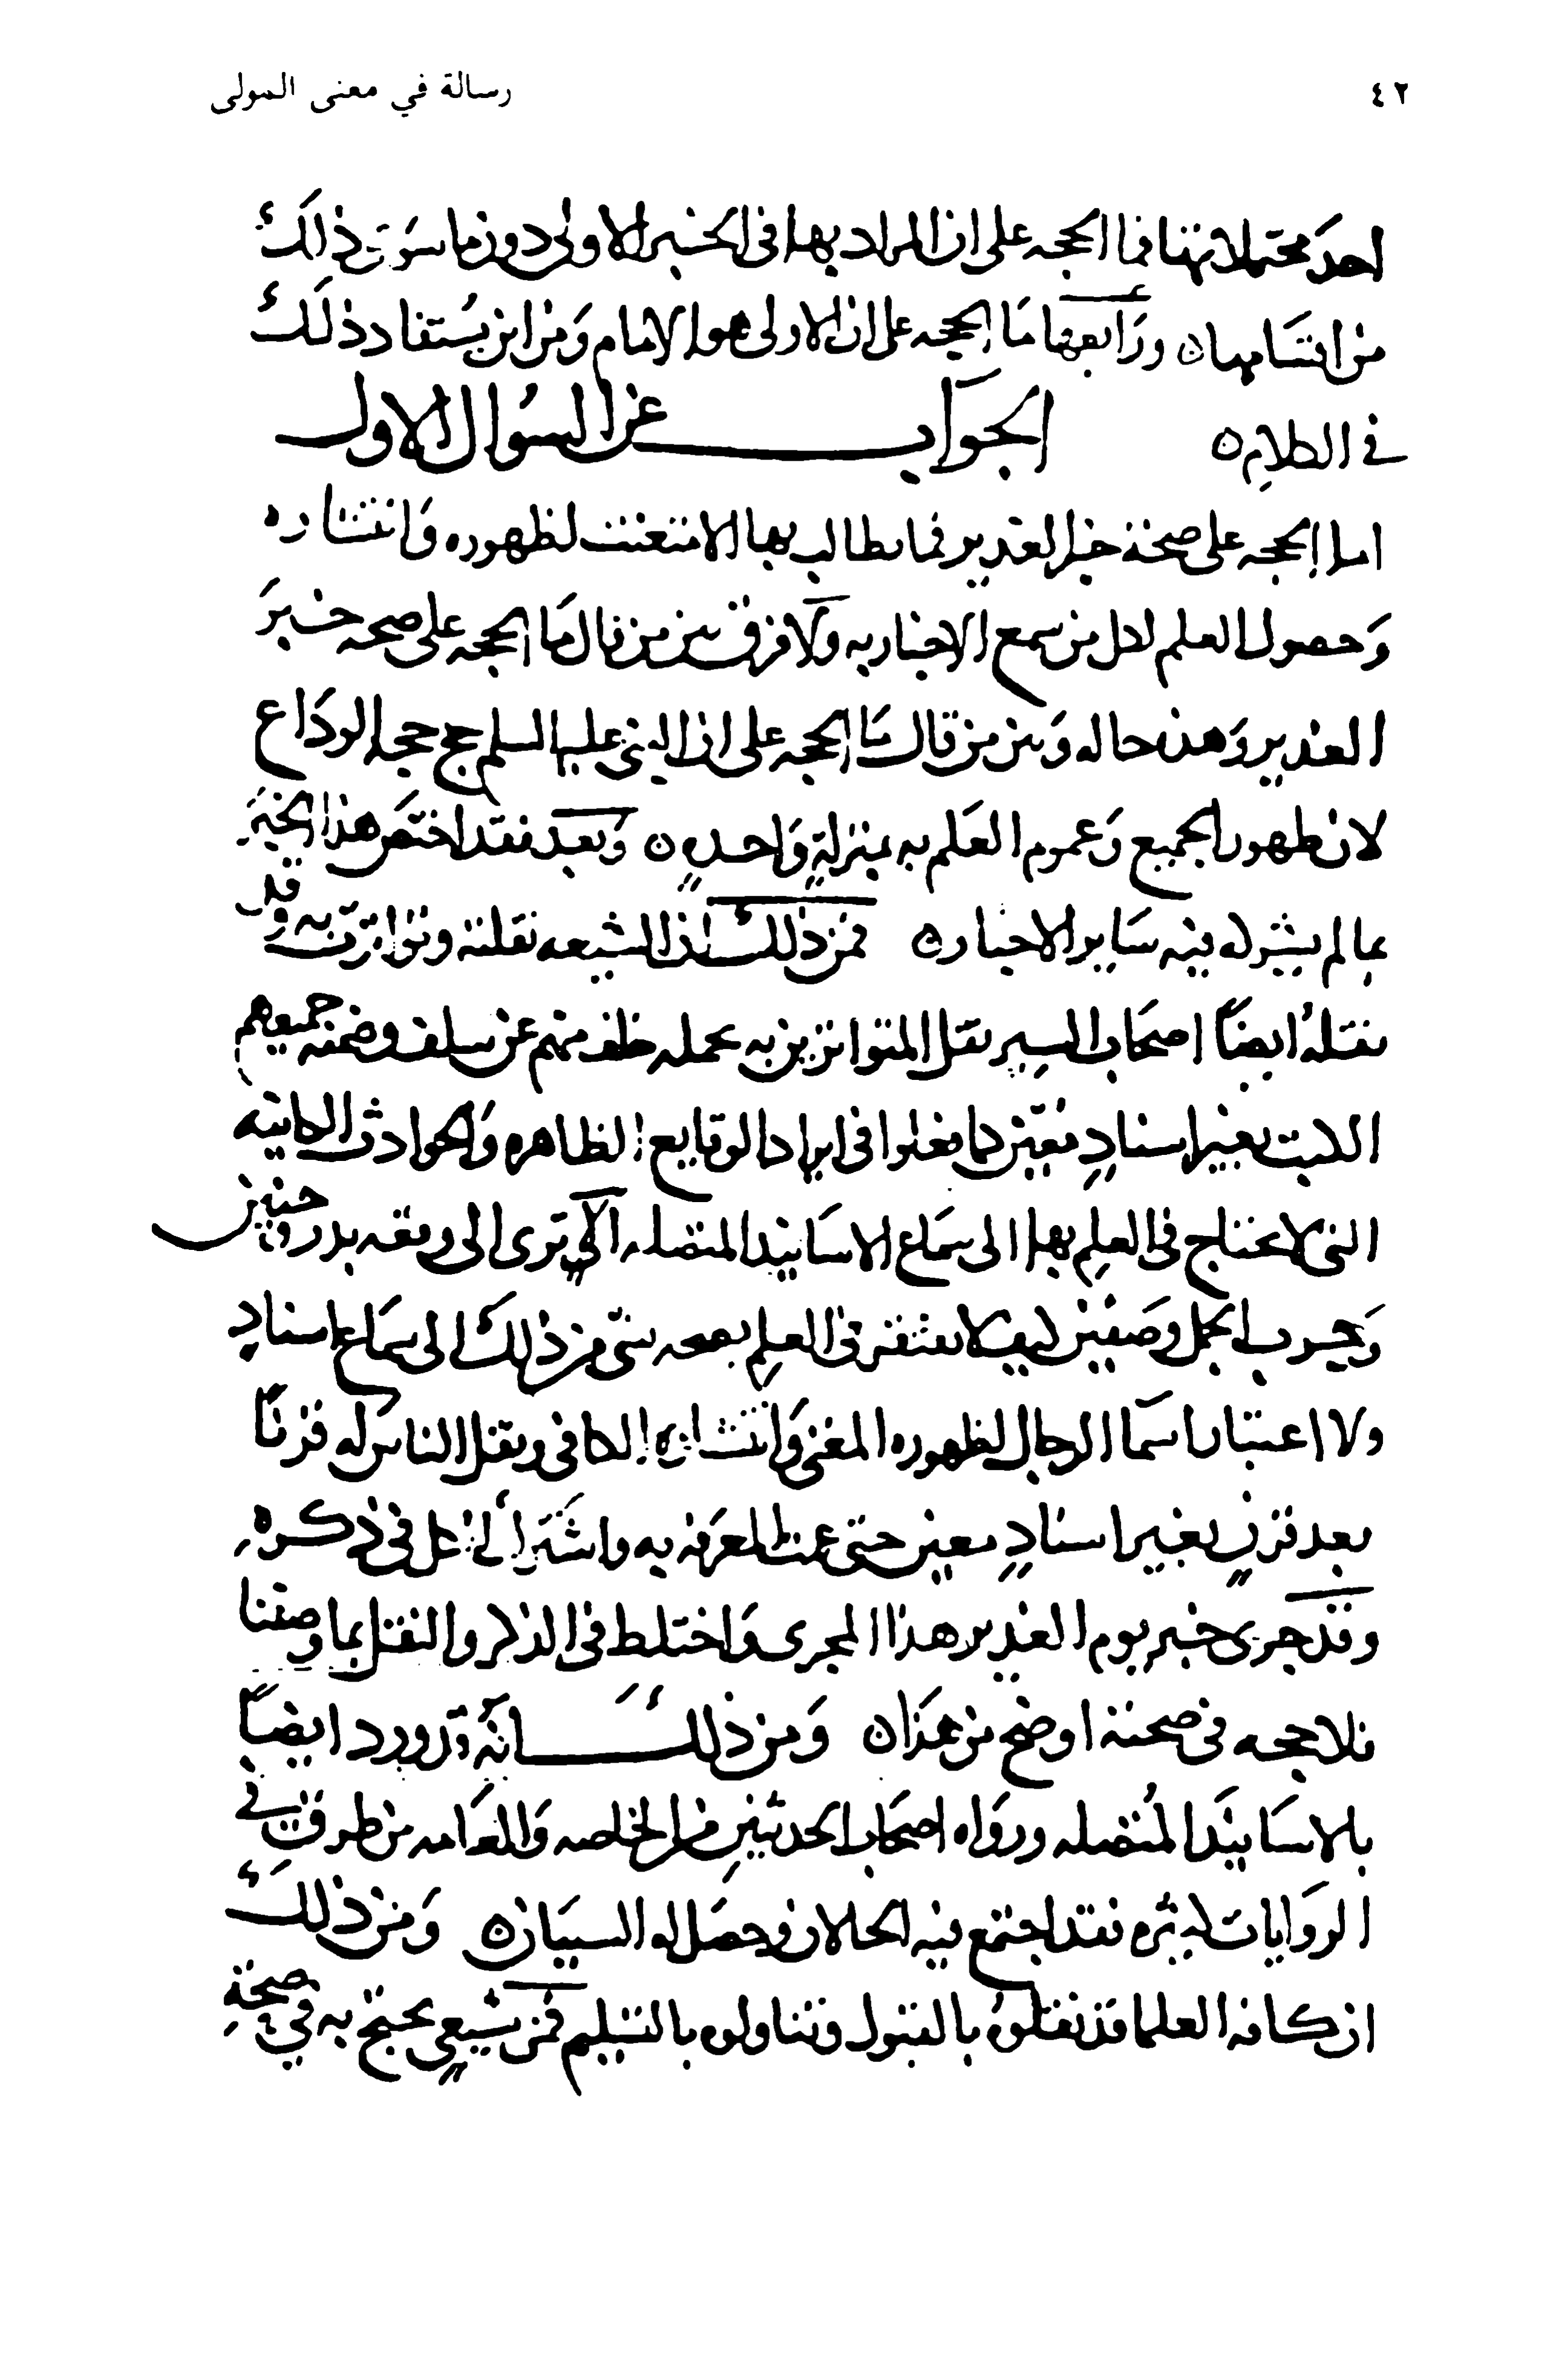 ٤٢
رسالة في معنى المولى
احد محتملاتها فما الحجه على ان المراد بها في الخبر الاولى دون ما سوى ذلك
من اقسامها ن ورابعها ما الحجه على ان الاولى هو الامام ومن اين يستفاد ذلك
في الكلام ن الجواب عن السؤال الاول
اما الحجه على صحة خبر الغدير فما يطالب بها الا متعنت لظهوره وانتشاره
وحصول العلم لكل من سمع الاخبار به ولا فرق بين من قال ما الحجه على صحه خبر
الغدير وهذه حاله وبين من قال ما الحجه على ان النبي عليه السلم حج حجه الوداع
لان ظهور الجميع وعموم العلم به بمنزلةٍ واحدهٍ ن وبعد فقد اختص هذا الخبر
بما لم يشركه فيه ساير الاخبار ن فمن ذلك ان الشيعه نقلته وتواترت به وقد
نقله ايضاً اصحاب السير نقل المتواترين به يحمله خلف منهم عن سلف وضمنه جميعهم
الكتب بغير اسنادٍ معين كما فعلوا في ايراد الوقايع الظاهره والحوادث الكاينه
التي لا يحتاج في العلم بها الى سماع الاسانيد المتصله الا ترى الى وقعه بدر وحنين
وحروب الجمل وصفين كيف لا يفتقر في العلم بصحه شي من ذلك الى سماع اسنادٍ
ولا اعتبار اسما الرجال لظهوره المغني وانتشاره الكافي ونقل الناس له قرناً
بعد قرنٍ بغير اسنادٍ معين حتى عمت المعرفه به واشترك الكل في ذكره
وقد جرى خبر يوم الغدير هذا المجرى واختلط في الذكر والنقل بما وصفنا
فلا حجه في صحته اوضح من هذا ن ومن ذلك انه قد ورد ايضاً
بالاسانيد المتصله ورواه اصحاب الحديثين من الخاصه والعامه من طرق في
الروايات كثيره فقد اجتمع فيه الحالان وحصل له السببان ومن ذلك
ان كافه العلما قد تلقوه بالقبول وتناولوه بالتسليم فمن شيعي يحتج به في صحةِ